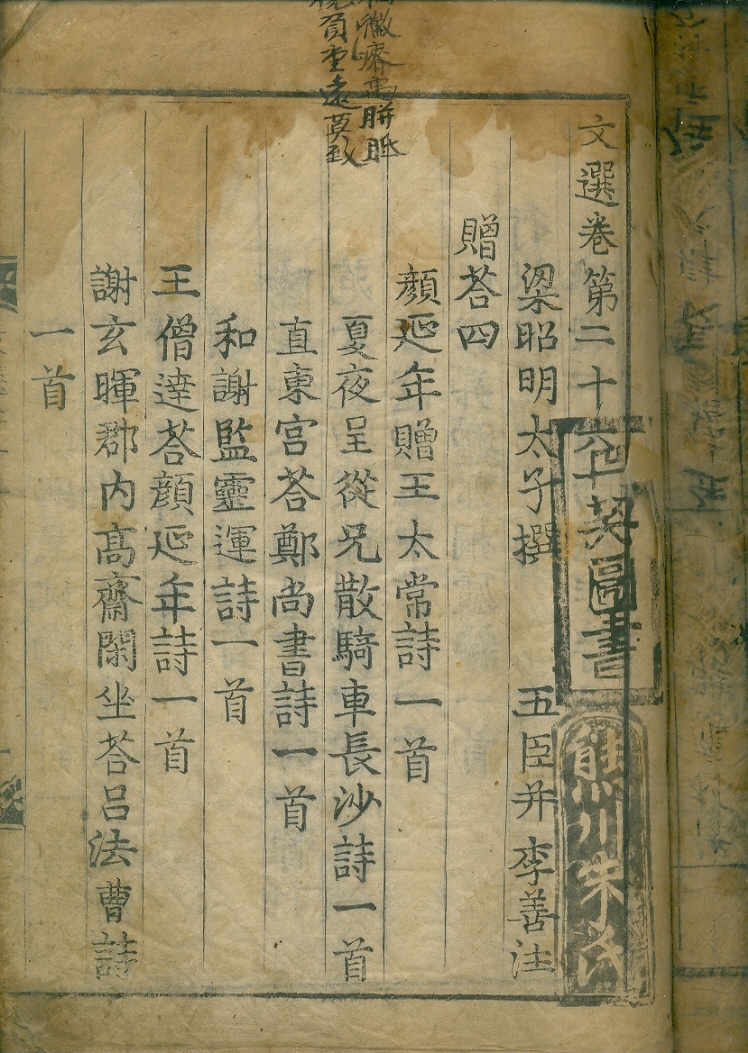 文選卷第二十六
梁昭明太子撰 五臣并李善注
贈荅四
顔延年贈王太常詩一首
夏夜呈從兄散騎車長沙詩一首
直東宮荅鄭尚書詩一首
和謝監靈運詩一首
王僧達荅顔延年詩一首
謝玄暉郡內髙齋閑坐荅呂法曹詩
一首
契圖書
熊川朱氏
胼胝
負重遠莫致